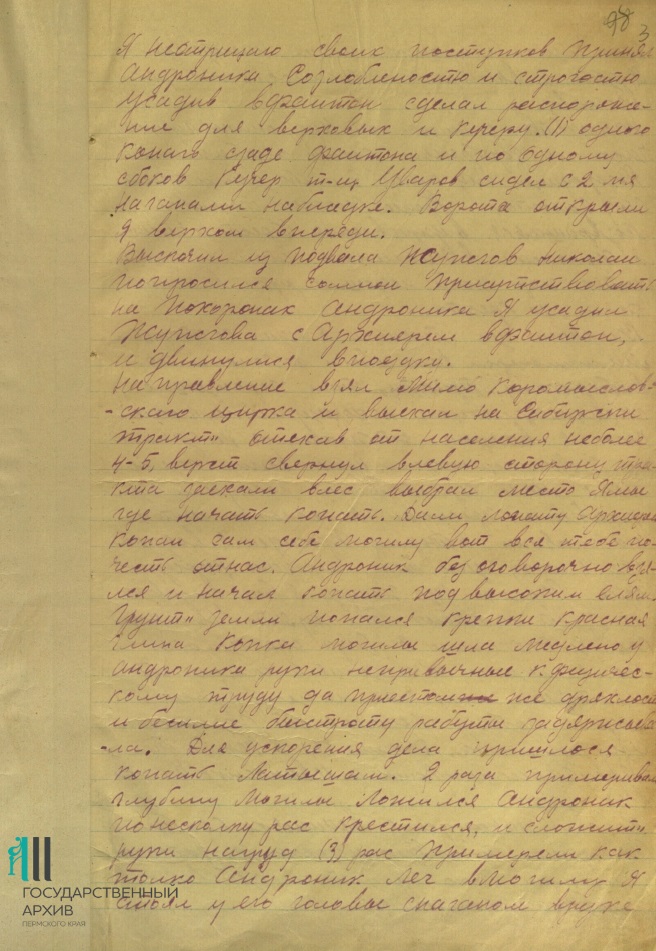 98 3
Я неотрицаю своих поступков принял
Андроника. Созлобленостю и строгостю
усадив вфаитон сделал распоряже-
ние для верховых и кучеру. (1) одино
конаго сзаде фаитона и по одному
сбоков Кучер т-щ Уваров сидел с 2 мя
Наганами набледке. Ворота открыли
Я верхом впереди.
Выскочил из подвала Жужгов Николаи
попросился сомной присутствовать
на Похоронах Андроника Я усадил
Жужгова с Архиереем вфаитон,
и двинулися впоездку.
Направление взял Мимо Коромыслов-
-скаго цирка и выехал на Сибирски
тракт" отехав от населения неболее
4-5, верст свернул влевую сторону тра-
кта заехали влес выбрал место Ямы
где начать копать. Дали лопату Архиерею
Копаи сам себе могилу вот вся тебе по-
честь отнас. Андроник без оговорочно взя-
лся и начал копать под высоким елям.
Грунт" земли попался крепки красная
глина копка могилы шла медлено у
Андроника руки непривычные к физичес-
кому труду да же дряхлость
и бесилие быстроту работы
-ла. Для ускорения дела пришлося
копать Латышам. 2 раза примеривали
глубину могилы ложился Андроник
понесколку рас крестился, и сложит"
руки нагруд (3) рас примерели как
толко Андроник лег вмогилу Я
стоял у его головы снаганом вруке
ГОСУДАРСТВЕННЫЙ
АРХИВ
ПЕРМСКОГО КРАЯ